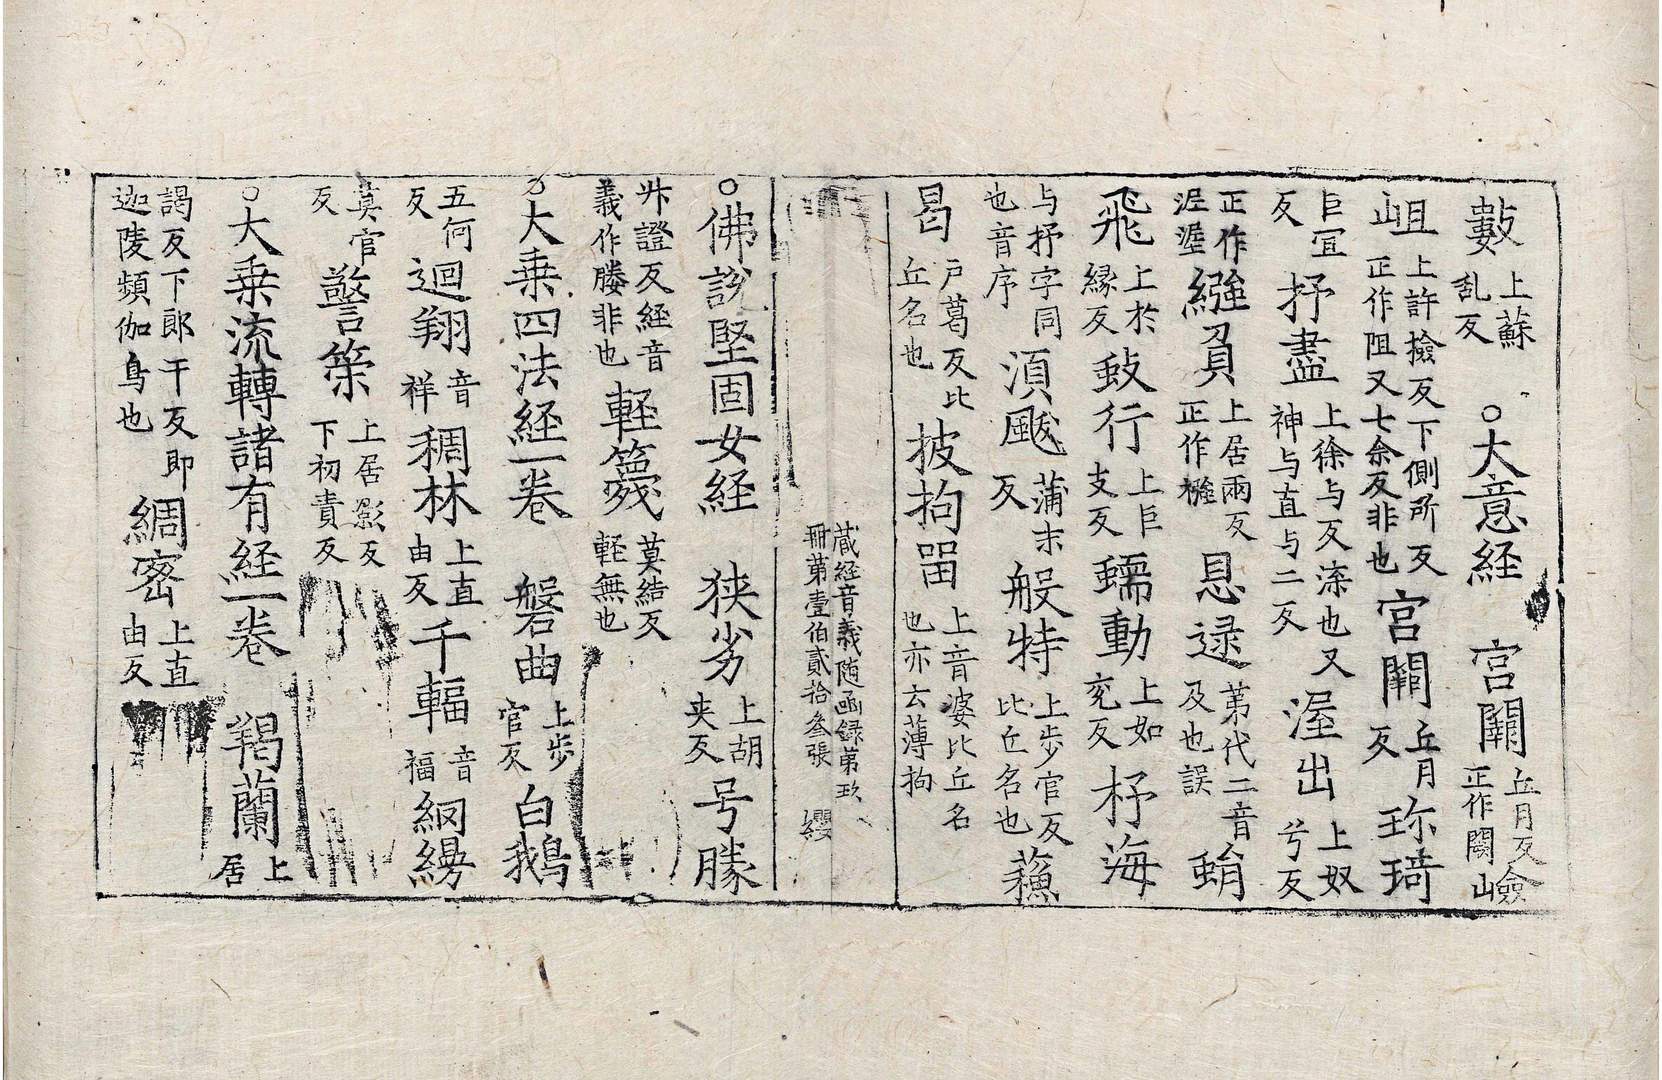 藪上蘇乱反　○大意経　宮闈丘月反正作闕山
岨上許撿反下側所反正作阻又七余反非也宮闈丘月反珎琦
巨宜反抒盡上徐与反渿也又神与直与二反渥出上奴兮反
正作渥繈負上居兩反正作襁息逯第代二音及也誤蜎
飛上於縁反蚑行上巨支反蠕動上如兖反杼海
与抒字同也音序湏颰蒲末反般特上步官反比丘名也䕳
曷戸葛反比丘名也披拘㽞上音婆比丘名也亦云薄拘
蔵経音義随函録第玖
冊第壹伯貳拾叄張　纓
○佛說堅固女経　狭劣上胡夾反号㬺
舛證反経音義作勝非也軽篾莫結反軽無也
大乗四法経一卷　磐曲上步官反白鵝
五何反迴翔音祥稠林上直由反千輻音福網縵
莫官反警策上居影反下初責反
○大乗流轉諸有経一卷　羯蘭上居
謁反下郎干反即迦陵頻伽鳥也綢密上直由反